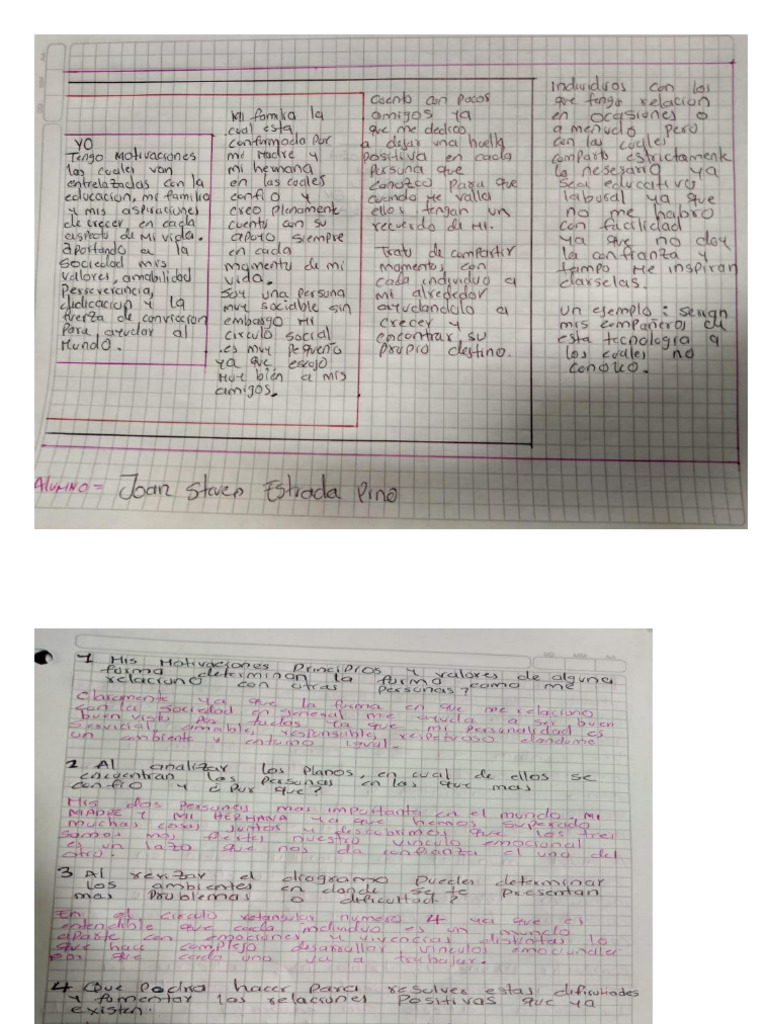 YO
Tengo Motivaciones
Las cuales van
entrelazadas con la
educacion, mi familia
y mis aspiraciones
de crecer en cada
aspecto de Mi vida.
aportando a la
Sociedad mis
valores, amabilidad
Perseverancia,
dedicacion y la
fuerza de conviccion
Para, ayudar al
Mundo.
Mi familia la
cual esta
confurmada por
mi Madre y
mi hemana
en las cuales
confio y
creo planament
cuento con su
apoyo siempre
en cada
momentu de mi
vida.
Soy una persona
muy sociable sin
embargo Mi
circulo social
es muy pequeño
ya que, escojo
muy bien a mis
amigos.
Cuento con pocos
amigos ya
que me dedico
a dejar una huella
positiva en cada
Persona que
conozco para que
cuando me valla
ellos tengan un
recuerdo de Mi.
Tratu de compartir
momentos, con
cada individuo a
mi alrededor
ayudandolo a
crecer y
encontrar, su
propio destino.
Individuos con los
que tengo relacion
en ocasiones o
a menudo pero
con las cuales
comparto estrictamente
lo nesesario ya
sea educativo
laboral ya que
no me habro
con facilidad
ya que no doy
la confianza y
tiempo me inspiran
darselas.
un ejemplo: serian
mis compañeros de
esta tecnologia a
los cuales no
conozco.
Alumno = Joan Steven Estrada Pino
1 Mis Motivaciones Principios y valores de alguna
forma determinan la forma como me
relaciono con otras Personas?
Claramente ya que la forma en que me relaciono
con la Sociedad en general me ayuda a ser buen
buen visto por todas ya que mi personalidad es
Servicial amable, responsable, respetuoso dandome
un ambiente y entorno igual.
2 Al analizar los planos, en cual de ellos se
encuentran las personas en las que mas
confio y ¿Por que?
Mis dos Personas mas importante en el mundo. Mi
MADRE Y MI HERMANA ya que hemos superado
muchas cosas juntos y descubrimos que los tres
Somos mas fuertes nuestro vinculo emocional
es un lazo que nos da confianza el uno del
otro.
3 Al revizar el diagrama Puedes determinar
los ambientes en donde se te presentan
mas problemas o dificultad?
En el circulo retangular numero 4 ya que es
entendible que cada individuo es un mundo
aparte con emociones y vivencias distintas lo
que hace complejo desarrollar vinculos emocionales
por que cada uno va a trabajar.
4 Que Podria hacer para resolver estas dificultades
y fomentar las relaciones Positivas que ya
existen.